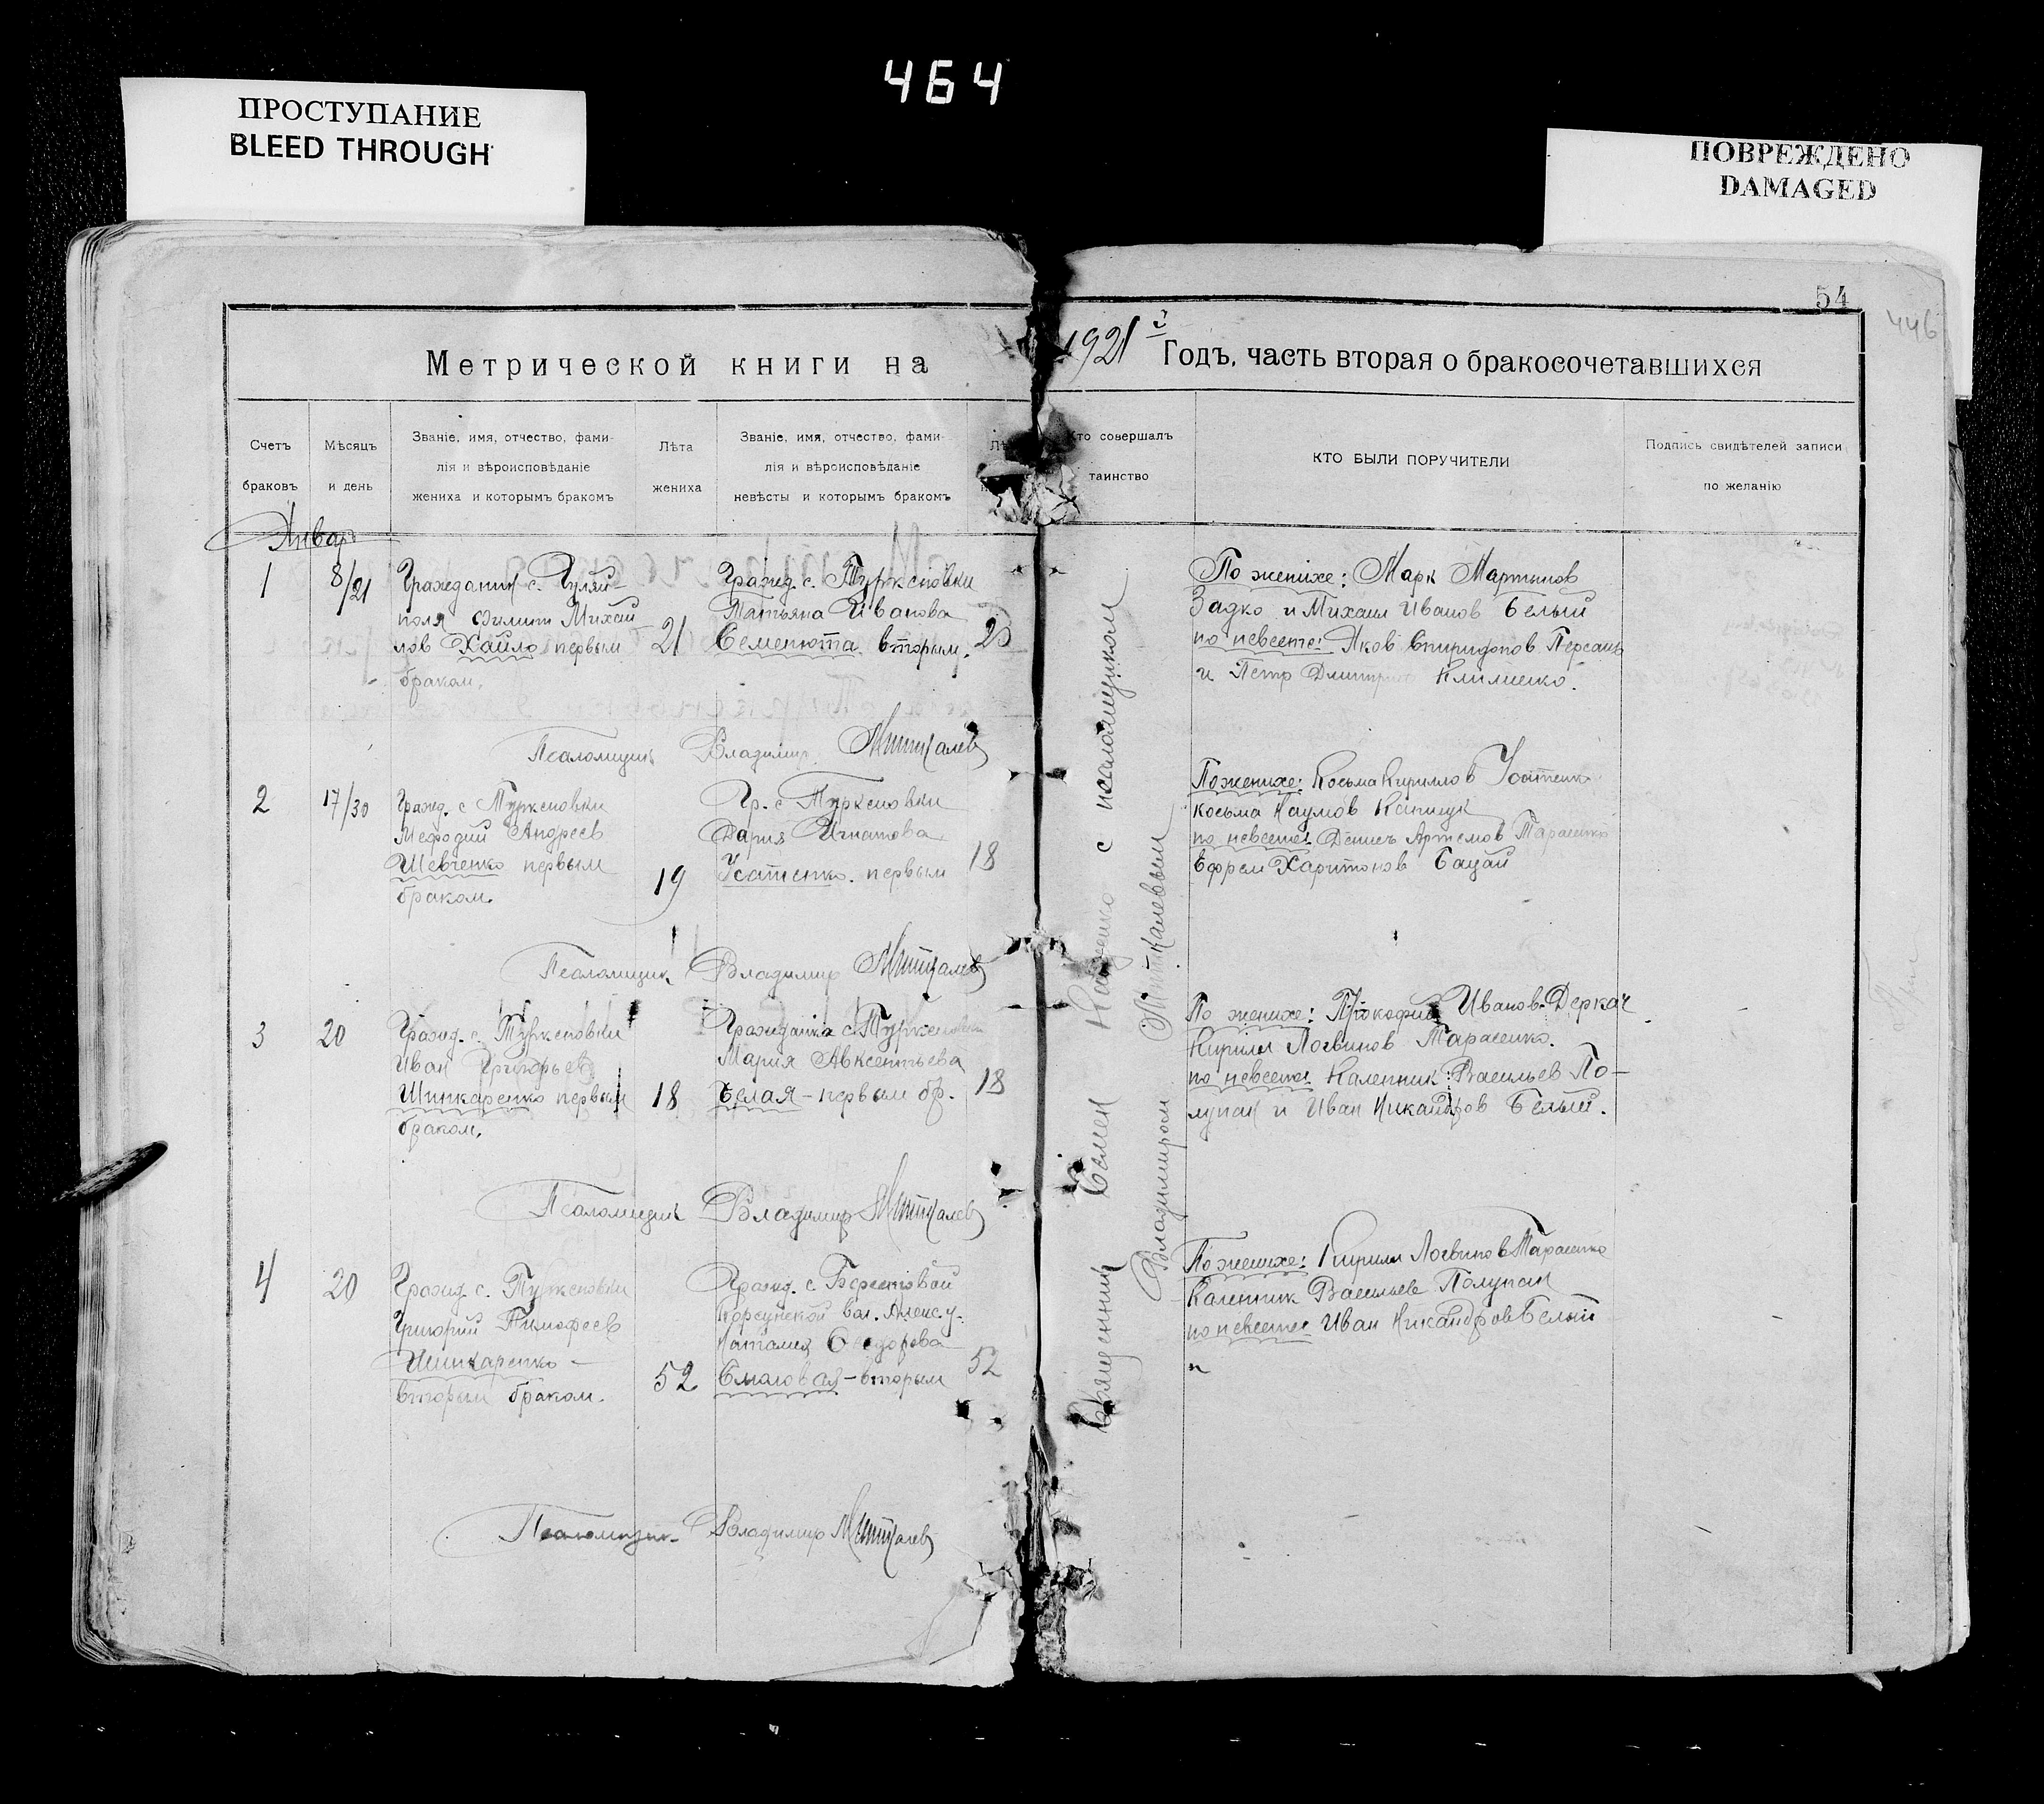 464
ПРОСТУПАНИЕ
BLEED THROUGH
ПОВРЕЖДЕНО
DAMAGED
54
446
Метрической книги на 1921 Годъ, часть вторая о бракосочетавшихся
Счетъ
браковъ
Мѣсяцъ
и день
Званіе, имя, отчество, фами-
лія и вѣроисповѣданіе
жениха и которымъ бракомъ
Лѣта
жениха
Званіе, имя, отчество, фами-
лія и вѣроисповѣданіе
невѣсты и которымъ бракомъ
Кто совершалъ
таинство
КТО БЫЛИ ПОРУЧИТЕЛИ
Подпись свидѣтелей записи
по желанію
Январ
1
8/21
Гражданин с. Гуляй-
поля Филип Михай
лов Хайло первым
браком.
21
Гражд. с. Туркеновки
Татьяна Иванова
Семенюта вторым.
23
По женихе: Марк Мартинов
Задко и Михаил Иванов Белый
по невесте: Яков Спиридонов
и Петр Клименко.
Псаломщик Владимир
2
17/30
Гражд. с Туркеновки
Мефодий Андреев
Шевченко первым
браком.
19
Гр. с Туркеновки
Дария Игнатова
Усатенко. первым
18
По женихе: Косьма Кириллов Усатенко
Косьма Наумов
по невесте: Денис Артемов Тарасенко
Ефрем Харитонов Бацай
Псаломщик Владимир
3
20
Гражд. с. Туркеновки
Иван Григорьев
Шинкаренко первым
браком.
18
Гражданка с. Туркеновки
Мария Авксентьева
Белая – первым бр.
18
По женихе: Прокофий Иванов Деркач
Кирилл Логвинов Тарасенко.
по невесте: Каленник Васильев По-
лупан и Иван Никандров Белый.
Псаломщик Владимир
4
20
Гражд. с. Туркеновки
Григорий Тимофеев
Шинкаренко –
вторым браком.
52
Гражд. с. Берестовой
вол. Алекс. у.
Наталия Феодорова
– вторым
52
По женихе: Кирилл Логвинов Тарасенко
Каленник Васильев Полупан
по невесте: Иван Никандров Белый
"
Псаломщик Владимир
Священник Семен с псаломщиком
Владимиром